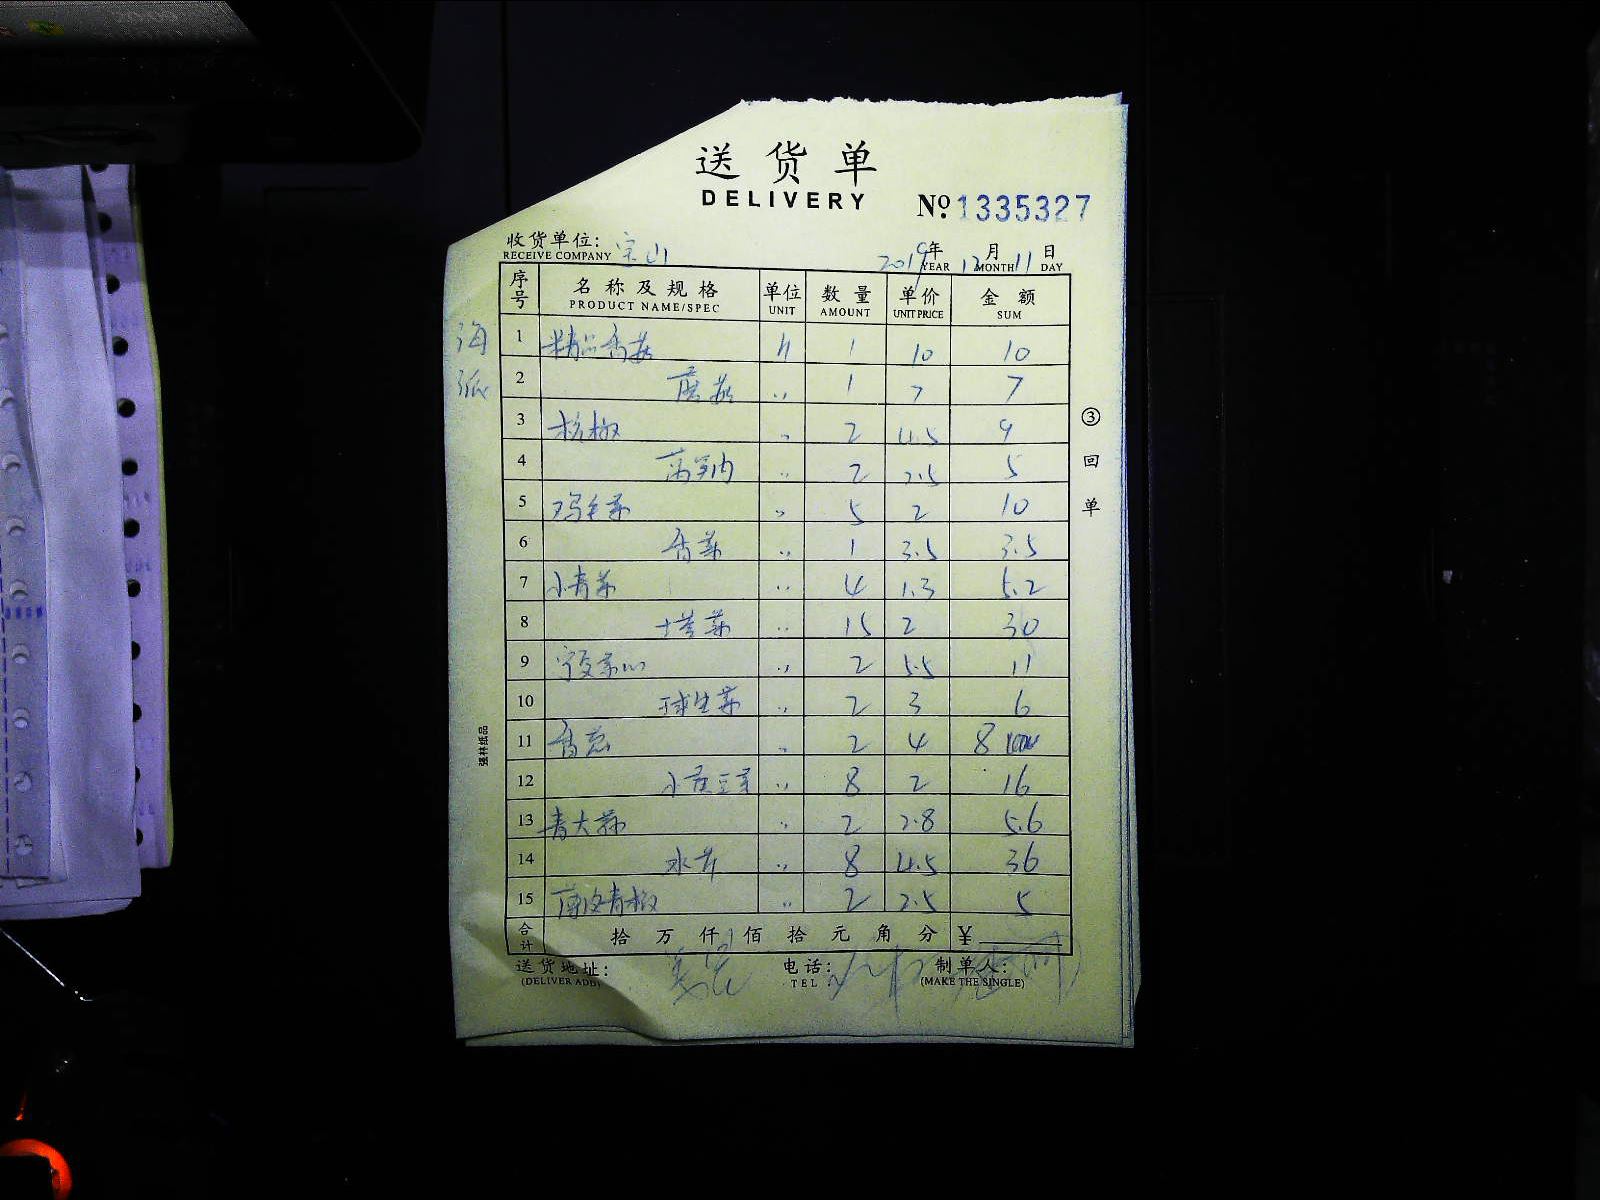 送货单
DELIVERY
№ 1335327
收货单位: 宝山 2019年 12月 11日
RECEIVE COMPANY YEAR MONTH DAY
序号 名称及规格 单位 数量 单价 金额
PRODUCT NAME/SPEC UNIT AMOUNT UNIT PRICE SUM
海
1 精品香菇 斤 1 10 10
2 蘑菇 〃 1 7 7
3 杭椒 〃 2 4.5 9
4 莴笋肉 〃 2 2.5 5
5 鸡毛菜 〃 5 2 10
6 香菜 〃 1 3.5 3.5
7 小青菜 〃 4 1.3 5.2
8 塔菜 〃 15 2 30
9 宁夏菜心 〃 2 5.5 11
10 球生菜 〃 2 3 6
11 香葱 〃 2 4 8
12 小黄豆芽 〃 8 2 16
13 青大蒜 〃 2 2.8 5.6
14 水芹 〃 8 4.5 36
15 薄皮青椒 〃 2 2.5 5
合计 拾 万 仟 佰 拾 元 角 分 ¥
送货地址: 电话: 制单人:
(DELIVER ADD) TEL (MAKE THE SINGLE)
③回单
强林纸品